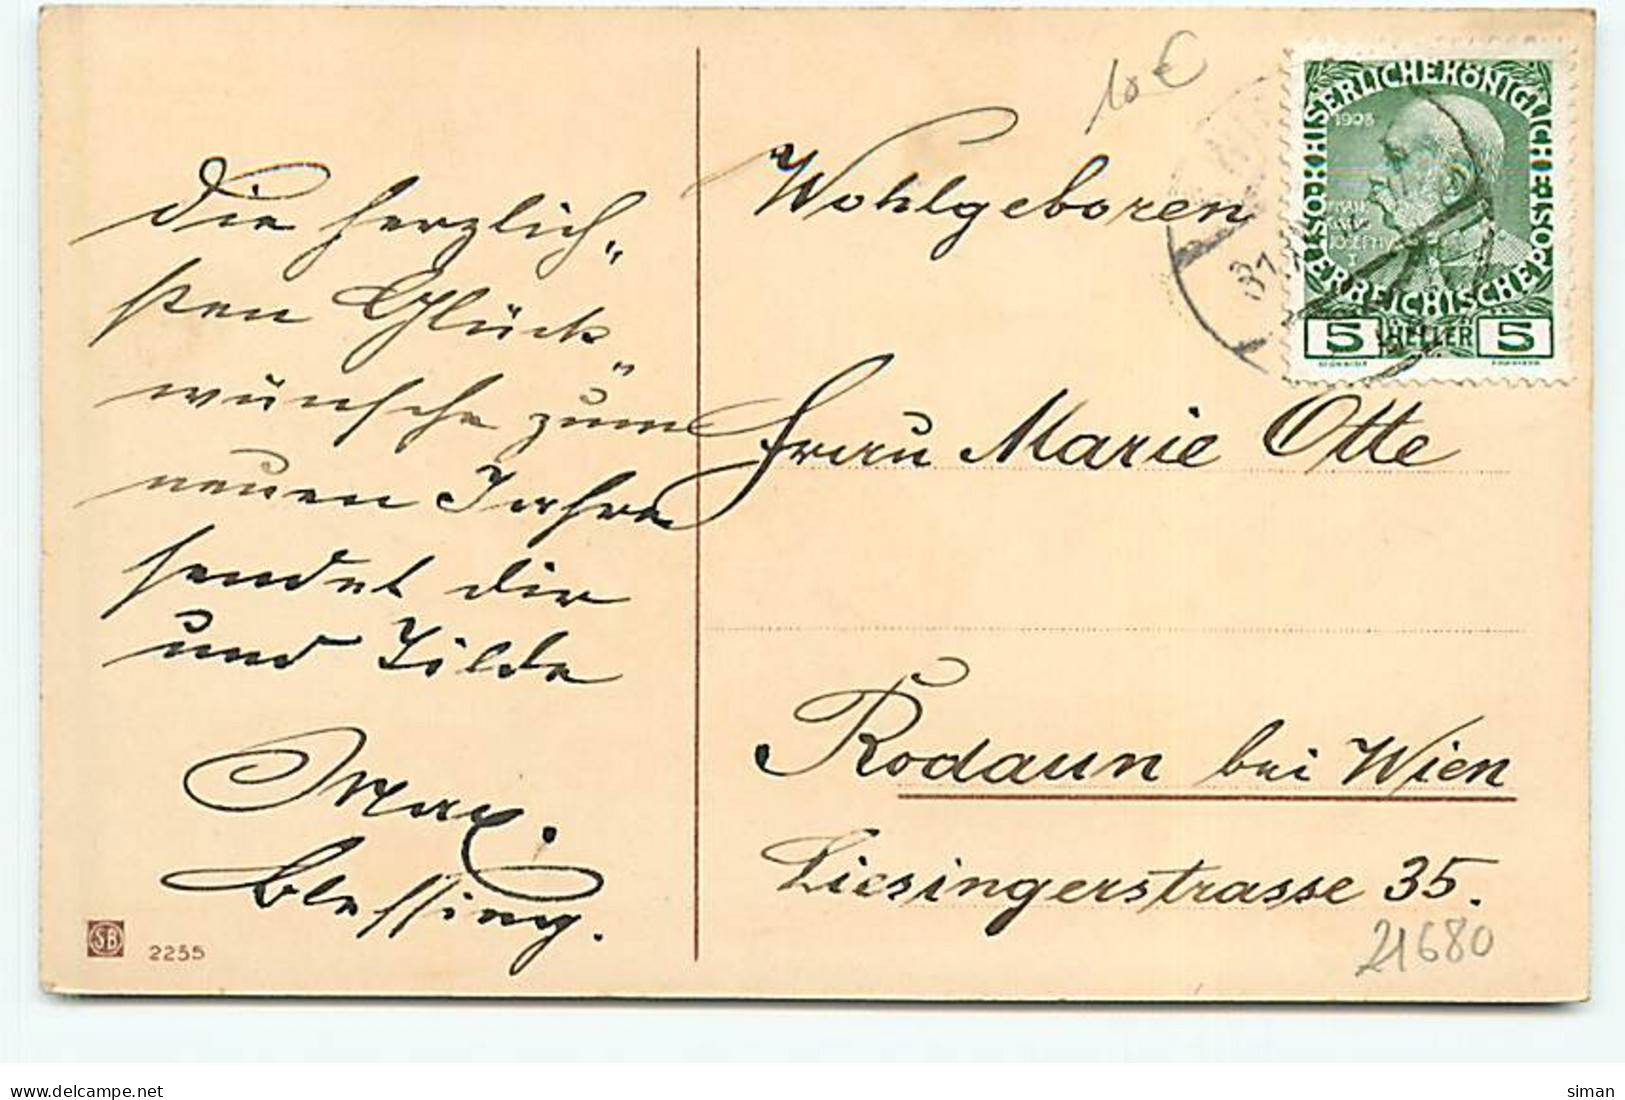 Die herzlich„
sten Glück„
wünsche zum
neuen Jahre
sendet dir
und Tilde
Max.
Blessing.
SB 2255
10 €
Wohlgeboren
Frau Marie Otte
Rodaun bei Wien
Liesingerstrasse 35.
21680
KAISERLICHE KÖNIGLICHE ÖSTERREICHISCHE POST
1908
5 HELLER 5
31
num-new-siman
siman